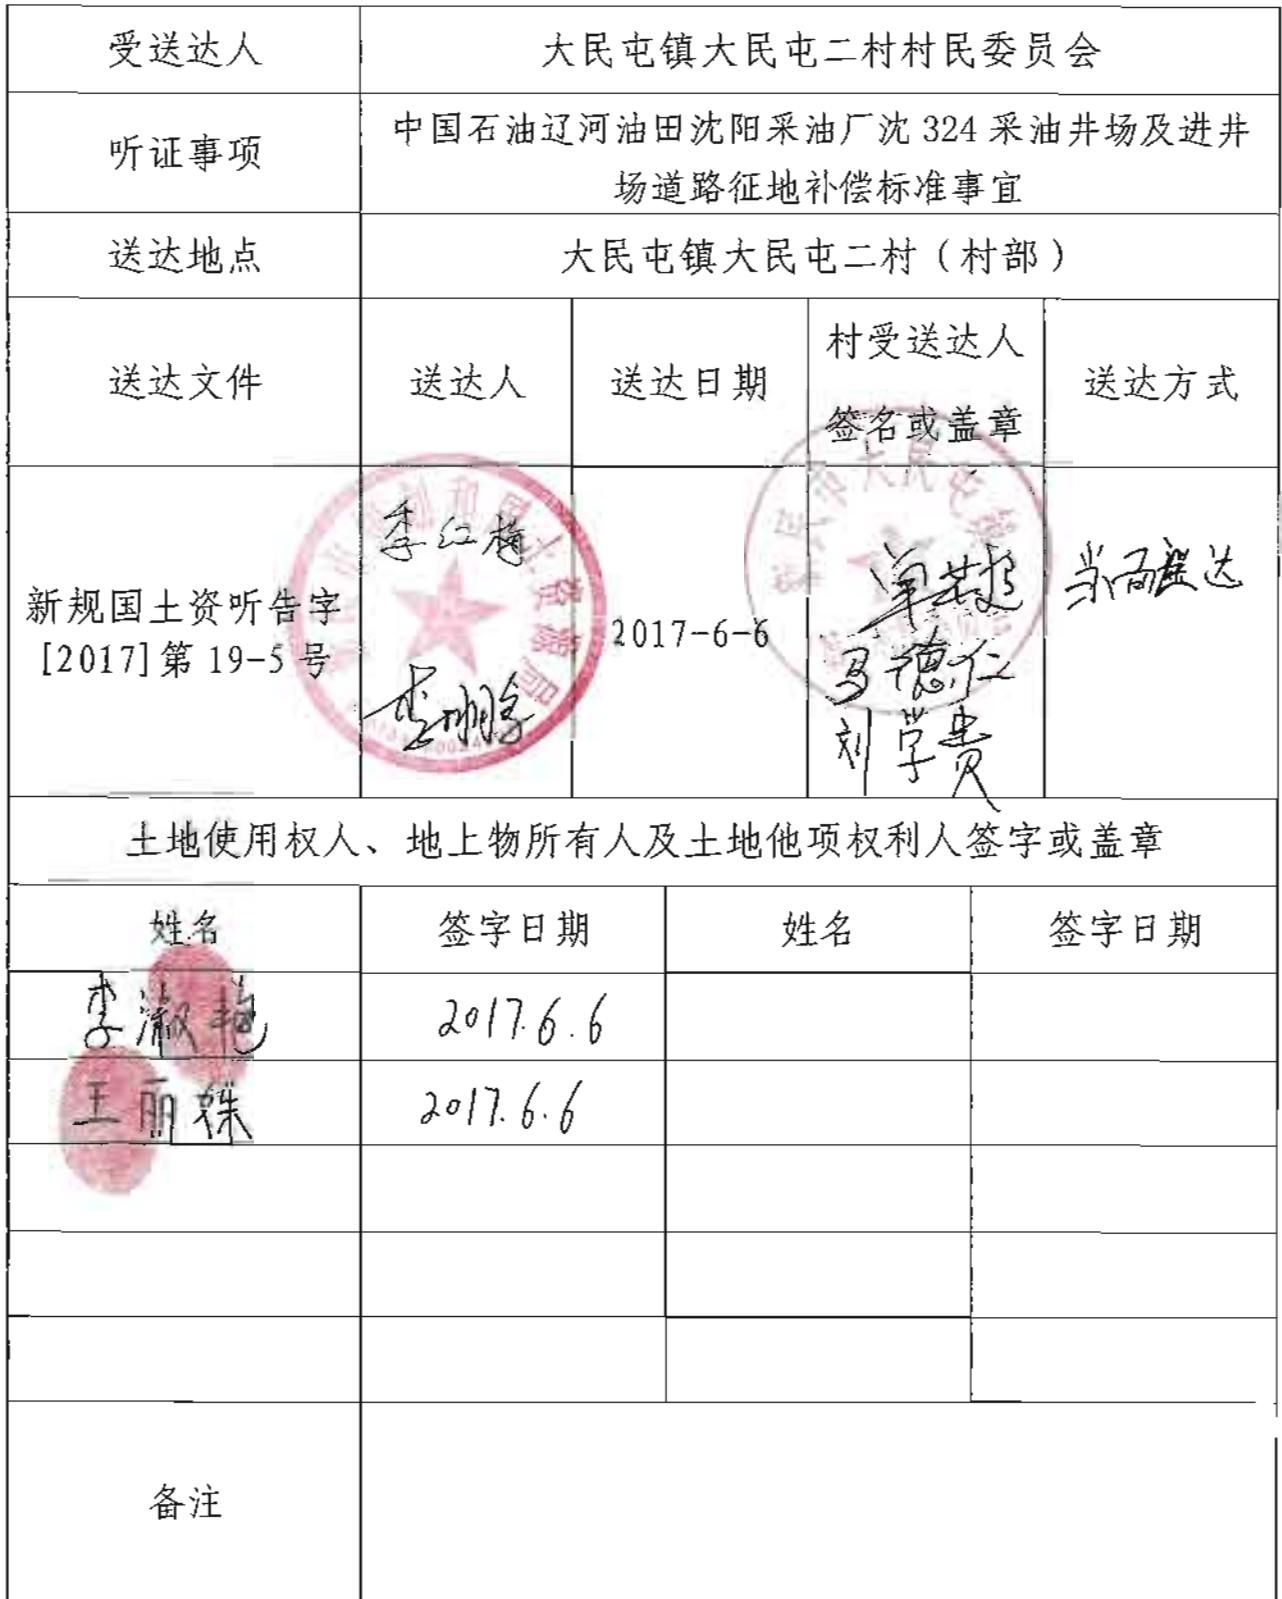 受送达人 大民屯镇大民屯二村村民委员会
听证事项 中国石油辽河油田沈阳采油厂沈324采油井场及进井
场道路征地补偿标准事宜
送达地点 大民屯镇大民屯二村（村部）
送达文件 送达人 送达日期 村受送达人
签名或盖章 送达方式
新规国土资听告字
[2017]第 19-5 号
李红梅
2017-6-6
马德仁
刘学贵
土地使用权人、地上物所有人及土地他项权利人签字或盖章
姓名 签字日期 姓名 签字日期
李淑艳 2017.6.6
王丽姝 2017.6.6
备注